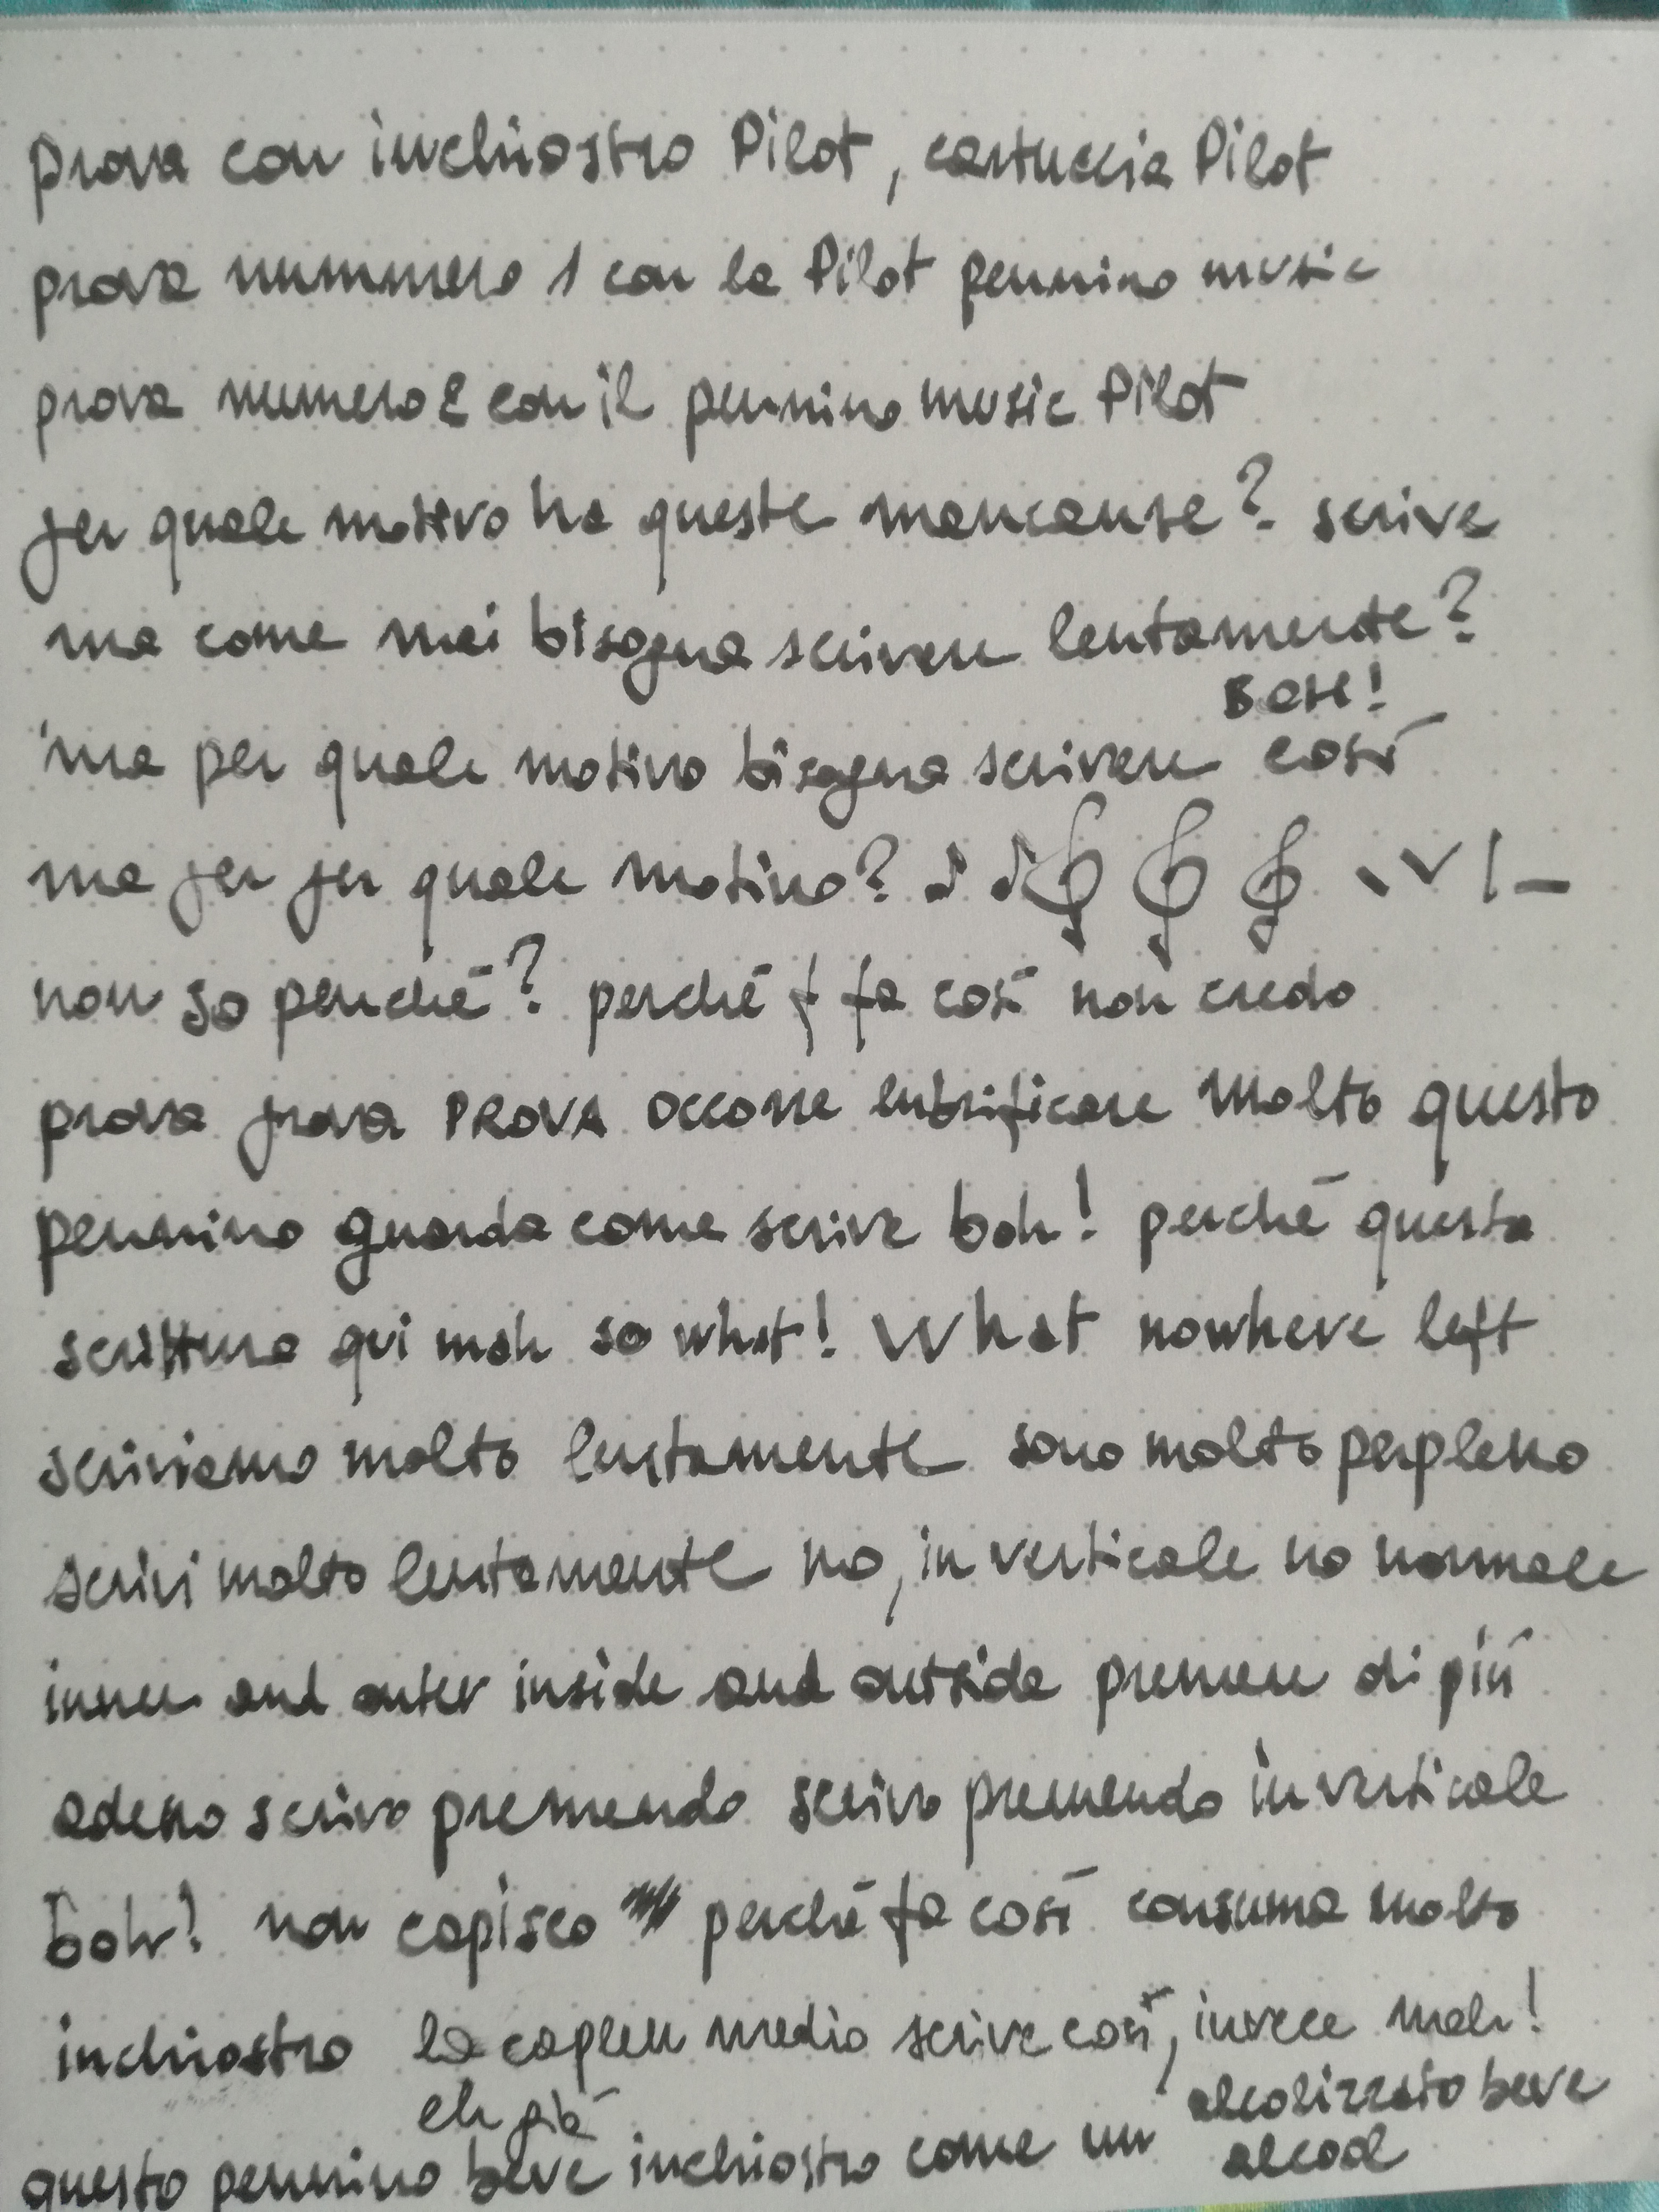 prova con inchiostro Pilot, cartuccia Pilot
prova nummero 1 con la Pilot pennino music
prova numero 2 con il pennino music Pilot
per quale motivo ha queste mancanze? scrive
ma come mai bisogna scrivere lentamente?
BOH!
ma per quale motivo bisogna scrivere così
ma per per quale motivo?
non so perché? perché f fa così non credo
prova prova PROVA occorre lubrificare molto questo
pennino guarda come scrive boh! perché questa
scrittura qui mah so what! What nowhere left
scriviamo molto lentamente sono molto perplesso
scrivi molto lentamente no, in verticale no normale
inner and outer inside and outside premere di più
adesso scrivo premendo scrivo premendo in verticale
boh! non capisco perché fa così consuma molto
inchiostro la capless medio scrive così, invece mah!
eh già
alcolizzato beve
questo pennino beve inchiostro come un alcool